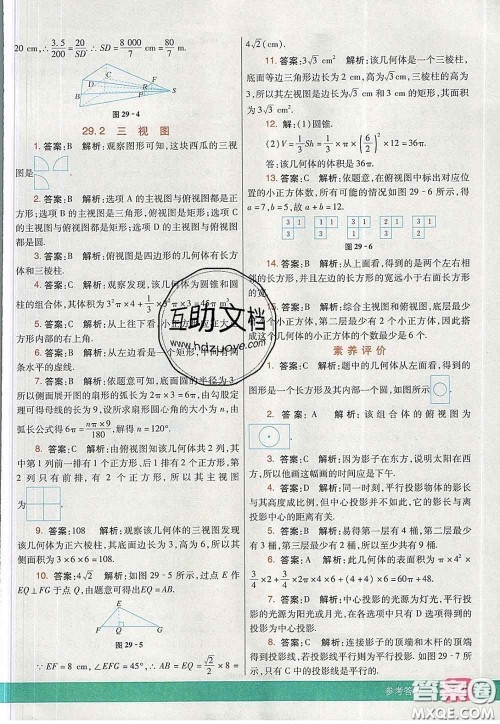 20 cm,∴3.5/200=20/SD,∴SD=8 000/7(cm)=80/7(m).
P
A
B
F
R
S
图 29-4
29.2 三 视 图
1. 答案：B 解析：观察图形可知，这块西瓜的三视
图是
2. 答案：C 解析：选项 A 的主视图与俯视图都是正
方形；选项 B 的主视图是三角形，俯视图是圆形；选项 C
的主视图与俯视图都是矩形；选项 D 的主视图与俯视图
都是圆.
3. 答案：B 解析：俯视图是四边形的几何体有长方
体和三棱柱.
4. 答案：C 解析：观察发现，该几何体为圆锥和圆
柱的组合体，其体积为 3²π×4+1/3×3²π×3=45π m³.
5. 答案：D 解析：从上面往下看
方体内部的右上角.
6. 答案：B 解析：从左面看是一个矩形，中间有两
条水平的虚线.
7. 答案：B 解析：依题意可知，底面圆的半径为 3，
所以侧面展开图的扇形的弧长为 2×π×3=6π，由勾股定
理可得母线的长为 9，设所求扇形圆心角的大小为 n，由
弧长公式得 6π=nπ×9/180，解得 n=120°.
8. 答案：C 解析：由俯视图知该几何体共 2 列，其
中第 1 列前一排有 1 个正方形、后一排有 2 个正方形，第
2 列只有前排，有 2 个正方形，所以其主视图为
9. 答案：108 解析：观察该几何体的三视图发现
该几何体为正六棱柱，其底面边长为 3，高为 6，所以其
侧面积为 3×6×6=108.
10. 答案：4√2 解析：如图 29-5 所示，过点 E 作
EQ⊥FG 于点 Q，由题意可得出 EQ=AB.
E
F
Q
G
图 29-5
∵EF=8 cm，∠EFG=45°，∴EQ=AB=√2/2×8=
4√2(cm).
11. 答案：3√3 cm² 解析：该几何体是一个三棱柱，
底面等边三角形边长为 2 cm，高为√3 cm，三棱柱的高为
3 cm，所以其左视图是边长为 3 cm 和√3 cm 的矩形，其面
积为 3√3 cm².
12. 解：(1)圆锥.
(2)V=1/3Sh=1/3×π×(6/2)²×12=36π.
答：该几何体的体积是 36π.
13. 答案：C 解析：依题意，在俯视图中标出对应位
置的小正方体数，所有可能的情况如图 29-6 所示，得
a=7，b=5，故 a+b=12.
图 29-6
14. 答案：B 解析：得到的是两个左右相
邻的长方形，并且左边的长方形的宽远小于右面长方形的
宽.
15. 答案：B 解析：综合主视图和俯视图，底层有 4
个小正方体，第二层最少有 2 个小正方体，因此
搭成这个几何体的小正方体的个数最少是 6.
素 养 评 价
1. 答案：C 解析：题中的几何体从左面看，得到的
图形是一个长方形及其内部一个圆，如图所示
2. 答案：A 解析：该组合体的俯视图为
3. 答案：C 解析：因为影子在东方，说明太阳在西
方，所以他这画画的时间应是下午.
4. 答案：D 解析：平行投影中物体的投影
与其高度成比例，但中心投影并不如此，所以二者不一定
相等.
5. 答案：B 解析：易得第一层有 4 桶，第二层最少
有 2 桶，第三层最少有 1 桶，所以至少共有 7 桶.
6. 答案：A 解析：由题意可知该几何体的表面积为 π×4²×
3/4+3/4×2π×4×2+4×2×2=24π+16.
7. 答案：D 解析：中心投影的光源为灯光，平行投
影的光源为阳光或月光，在各选项中只有 D 选项得到的
投影为中心投影.
8. 答案：C 解析：连接影子的顶端和木杆的顶端
得到投影线，若投影线平行则为平行投影，如图 29-7 所
示，只有 C 的投影线平行.
互助文档
www.hdzuoye.com
参考答案
答案圈
MXQE.COM